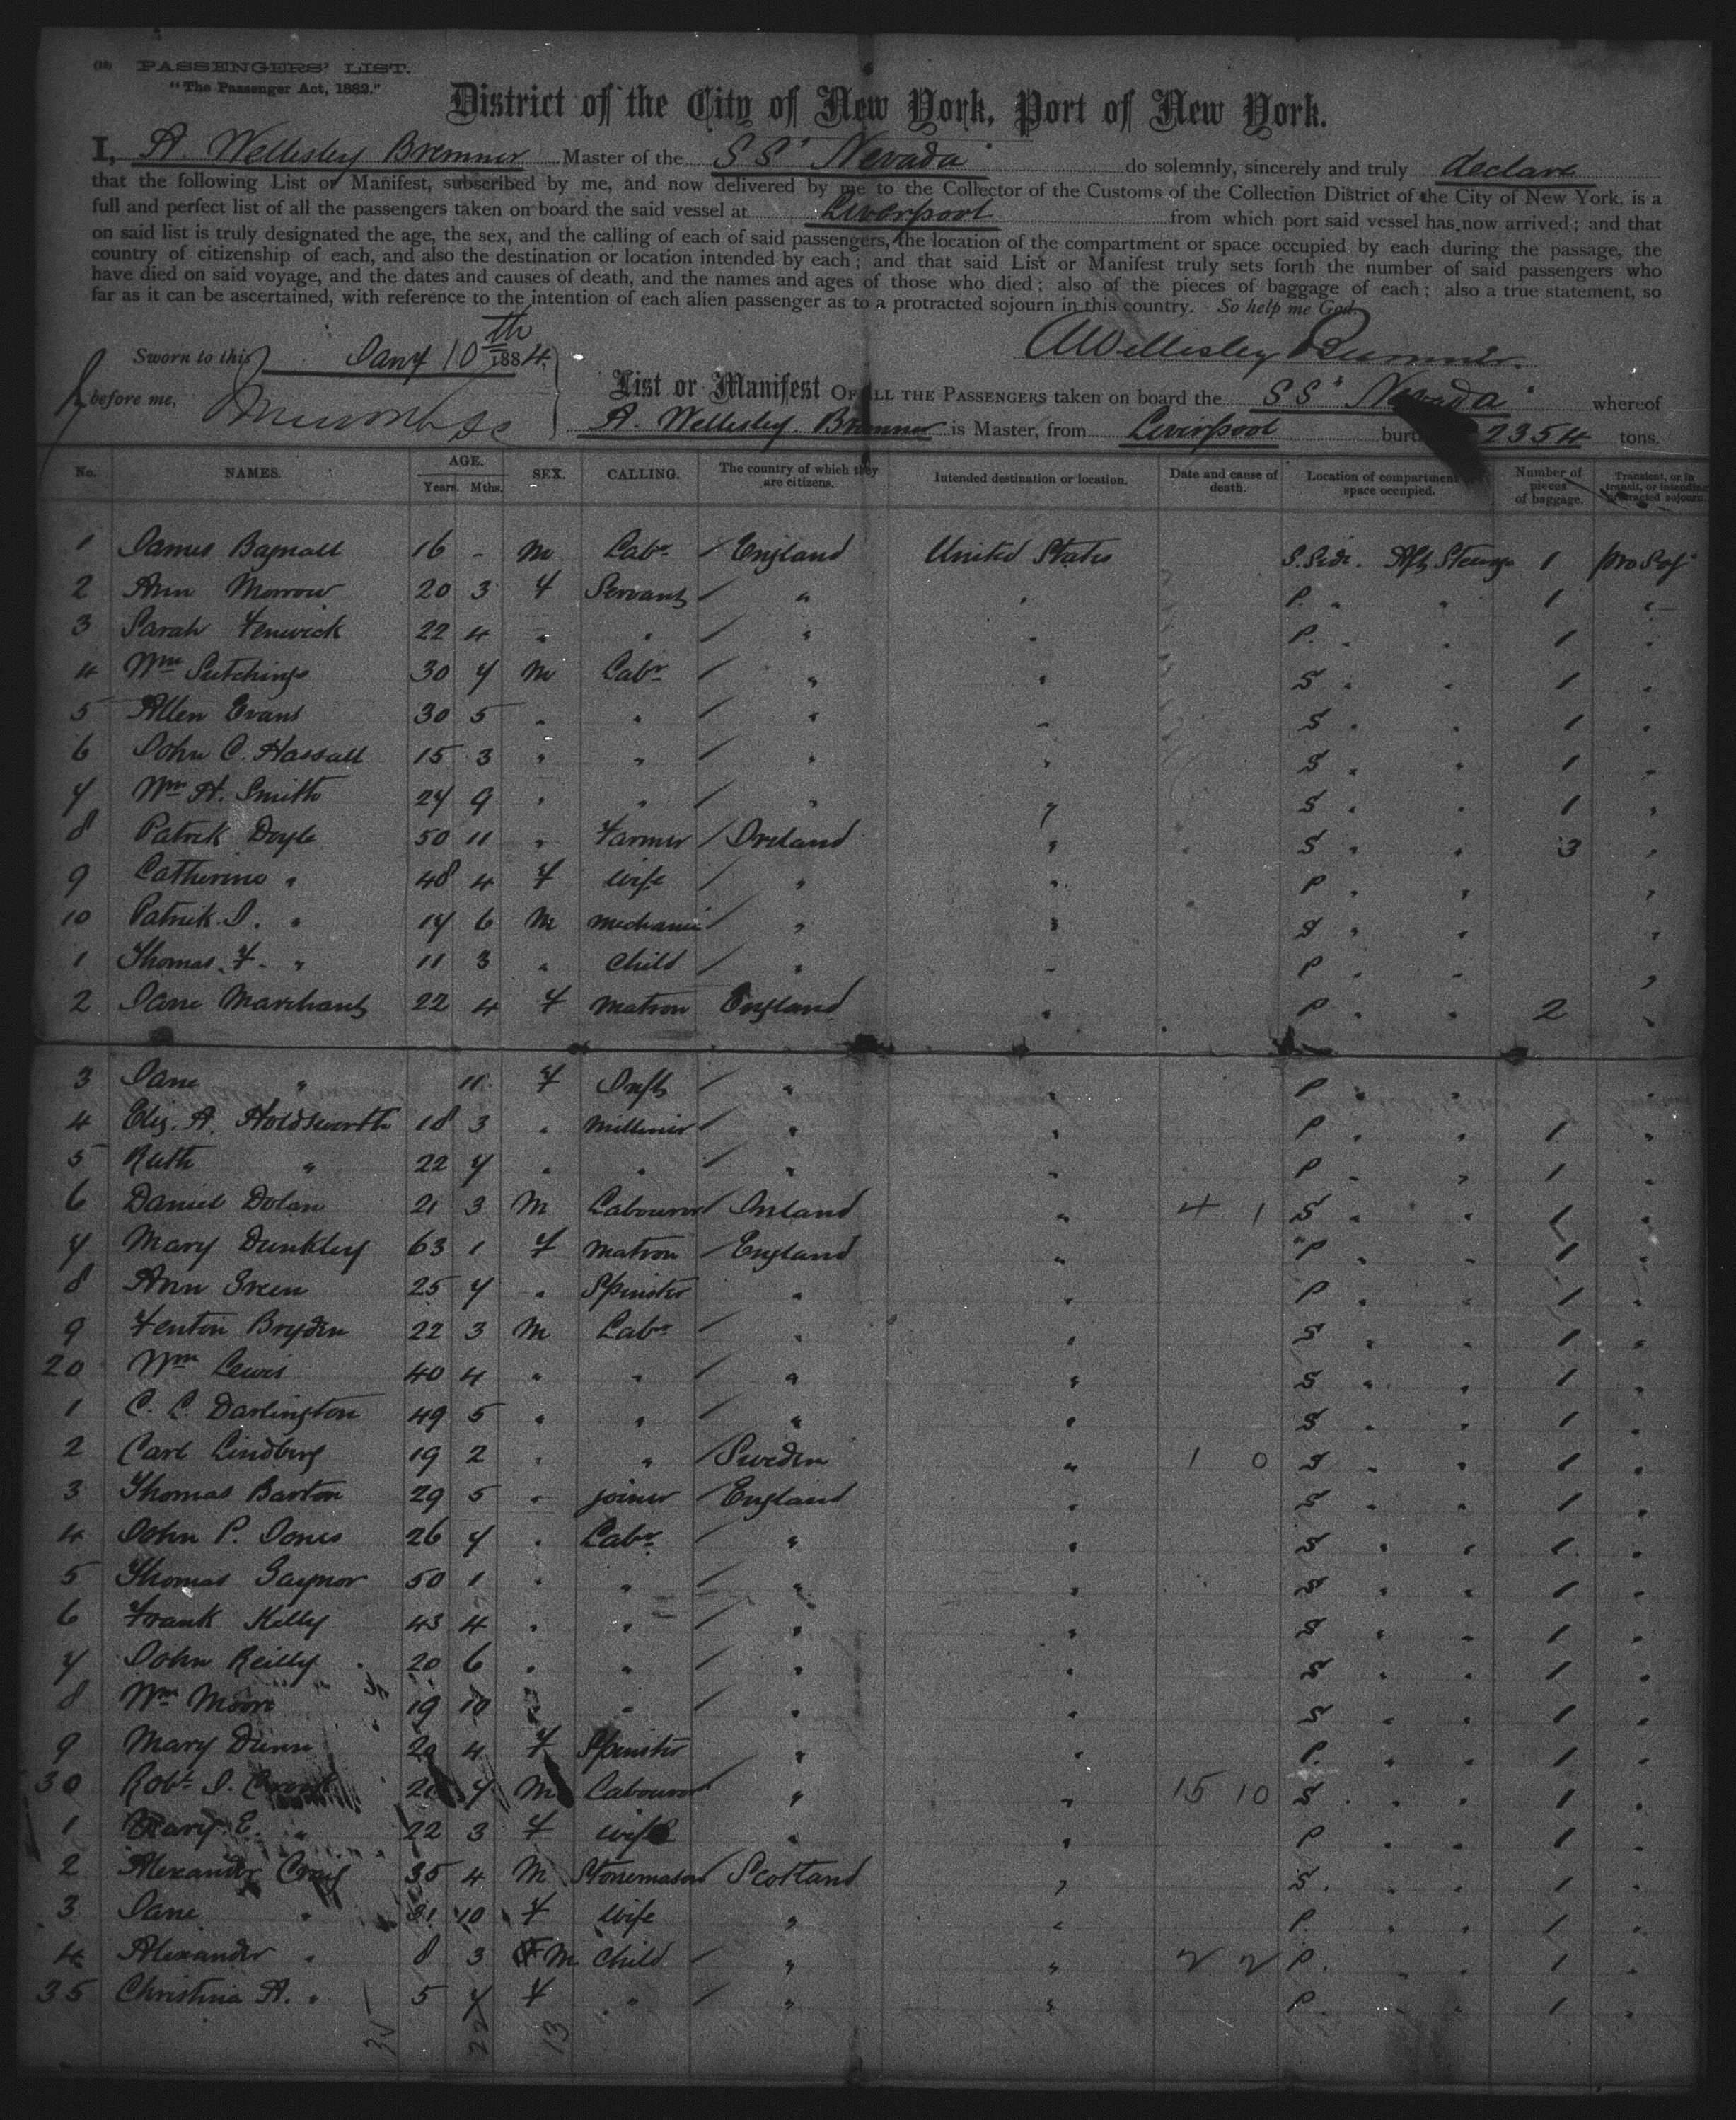 (18) PASSENGERS' LIST.
"The Passenger Act, 1882."
District of the City of New York, Port of New York.
I, A. Wellesley Bremner Master of the SS "Nevada" do solemnly, sincerely and truly declare
that the following List or Manifest, subscribed by me, and now delivered by me to the Collector of the Customs of the Collection District of the City of New York, is a
full and perfect list of all the passengers taken on board the said vessel at Liverpool from which port said vessel has now arrived; and that
on said list is truly designated the age, the sex, and the calling of each of said passengers, the location of the compartment or space occupied by each during the passage, the
country of citizenship of each, and also the destination or location intended by each; and that said List or Manifest truly sets forth the number of said passengers who
have died on said voyage, and the dates and causes of death, and the names and ages of those who died; also of the pieces of baggage of each; also a true statement, so
far as it can be ascertained, with reference to the intention of each alien passenger as to a protracted sojourn in this country. So help me God.
Sworn to this Jany 10th 1884. AWellesley Bremner.
before me,
List or Manifest OF ALL THE PASSENGERS taken on board the SS "Nevada" whereof
A. Wellesley Bremner is Master, from Liverpool burthen 2354 tons.
No. NAMES. AGE. Years. Mths. SEX. CALLING. The country of which they are citizens. Intended destination or location. Date and cause of death. Location of compartment or space occupied. Number of pieces of baggage. Transient, or in transit, or intending protracted sojourn.
1 James Bagnall 16 - M Labr / England United States S. Side. Aft Steerage 1 pro Soj
2 Ann Morrow 20 3 F Servant / " " P. " " 1 "
3 Sarah Fenwick 22 4 " " / " " P. " " 1 "
4 Wm Hutchings 30 7 M Labr / " " S " " 1 "
5 Allen Evans 30 5 " " / " " S " " 1 "
6 John C. Hassall 15 3 " " / " " S " " 1 "
7 Wm H. Smith 27 9 " " / " " S " " 1 "
8 Patrick Doyle 50 11 " Farmer / Ireland " S " " 3 "
9 Catherine " 48 4 F Wife / " " P " " "
10 Patrick J. " 17 6 M Mechanic / " " S " " "
1 Thomas F. " 11 3 " Child / " " P " " "
2 Jane Marchant 22 4 F Matron England " P " " 2 "
3 Jane " 11 F Inft / " " P " " "
4 Eliz. A. Holdsworth 18 3 " Milliner / " " P " " 1 "
5 Ruth " 22 7 " " / " " P " " 1 "
6 Daniel Dolan 21 3 M Labourer / Ireland " 4 1 S " " 1 "
7 Mary Dunkley 63 1 F Matron / England " P " " 1 "
8 Ann Green 25 7 " Spinster " " P " " 1 "
9 Fenton Bryden 22 3 M Labr / " " S " " 1 "
20 Wm Lewis 40 4 " " / " " S " " 1 "
1 C. C. Darlington 49 5 " " / " " S " " 1 "
2 Carl Lindberg 19 2 " " / Sweden " 1 0 S " " 1 "
3 Thomas Barton 29 5 " joiner / England " S " " 1 "
4 John P. Jones 26 7 " Labr / " " S " " 1 "
5 Thomas Gaynor 50 1 " " / " " S " " 1 "
6 Frank Kelly 43 4 " " / " " S " " 1 "
7 John Reilly 20 6 " " / " " S " " 1 "
8 Wm Moore 19 10 " " / " " S " " 1 "
9 Mary Dunn 20 4 F Spinster " " P. " " 1 "
30 Robt J. 7 M Labourer / " " 15 10 S " " 1 "
1 Mary E. " 22 3 F Wife " " P " " 1 "
2 Alexander Craig 35 4 M Stonemason / Scotland " S " " 1 "
3 Jane " 31 10 F Wife " " P. " " 1 "
4 Alexander " 8 3 M Child / " " 2 2 P. " " 1 "
35 Christina A. " 5 7 F " / " " P. " " 1 "
22 13